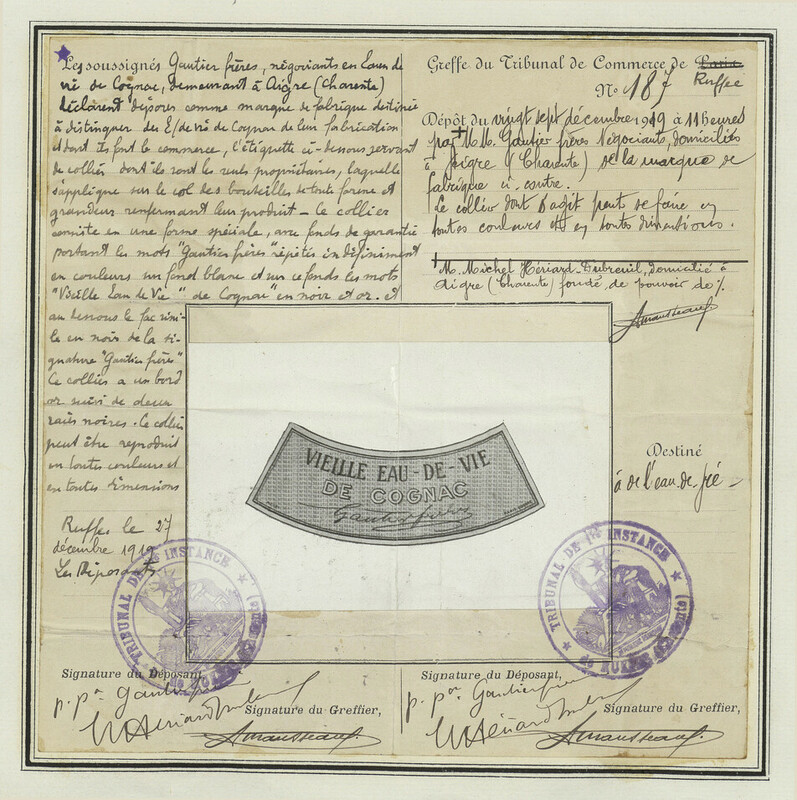 Les soussignés Gautier frères, négociants en Eaux de
vie de Cognac, demeurant à Aigre (Charente)
déclarent déposer comme marque de fabrique destinée
à distinguer des E/de vie de Cognac de leur fabrication
et dont ils font le commerce, l'étiquette ci-dessous servant
de collier dont ils sont les seuls propriétaires, laquelle
s'applique sur le col des bouteilles de toute forme et
grandeur renfermant leur produit - Ce collier
consiste en une forme spéciale, avec fonds de garantie
portant les mots "Gautier frères" répétés indéfiniment
en couleurs sur fond blanc et sur ce fonds les mots
"Vieille Eau de Vie" "de Cognac" en noir et or. et
au dessous le fac simi-
le en noir de la si-
gnature "Gautier frères"
Ce collier a un bord
or suivi de deux
raies noires. Ce collier
peut être reproduit
en toutes couleurs et
en toutes dimensions
Ruffec le 27
décembre 1919
Les Déposants
Greffe du Tribunal de Commerce de Paris
Ruffec
No 187
Dépôt du vingt sept décembre 1919 à 11 heures
par MM. Gautier frères Négociants, domiciliés
à Aigre (Charente) de la marque de
fabrique ci-contre.
Le collier dont s'agit peut se faire en
toutes couleurs et en toutes dimentions.
M. Michel Hériard-Dubreuil, domicilié à
Aigre (Charente) fondé de pouvoir de %.
VIEILLE EAU-DE-VIE
DE COGNAC
Gautier frères
Destiné
à de l'eau-de-vie -
TRIBUNAL DE 1re INSTANCE
de RUFFEC (Charente)
TRIBUNAL DE 1re INSTANCE
de RUFFEC (Charente)
Signature du Déposant,
p. pon Gautier frères
Signature du Greffier,
Signature du Déposant,
p. pon Gautier frères
Signature du Greffier,